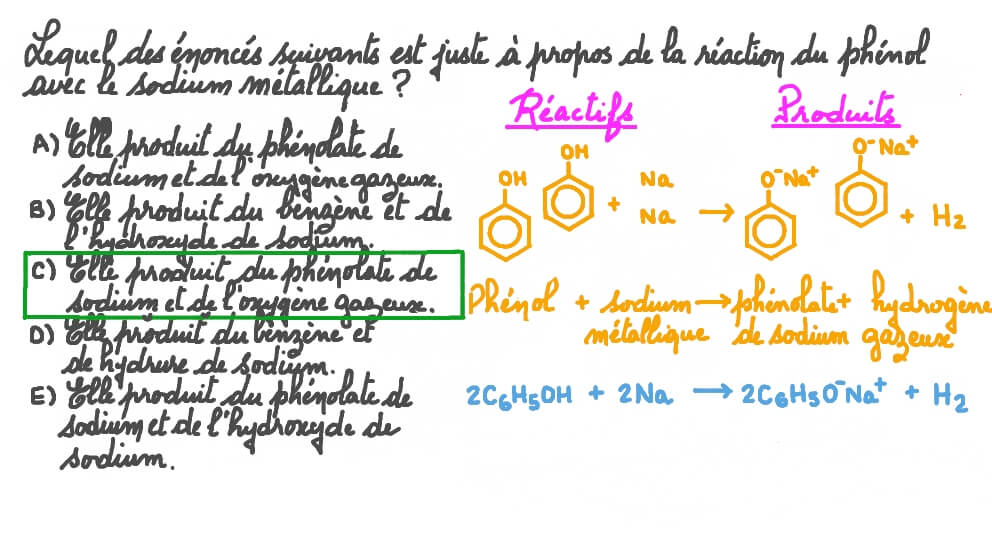 Lequel des énoncés suivants est juste à propos de la réaction du phénol
avec le sodium métallique ?
Réactifs
Produits
A) Elle produit du phénolate de
sodium et de l'oxygène gazeux.
B) Elle produit du benzène et de
l'hydroxyde de sodium.
C) Elle produit du phénolate de
sodium et de l'oxygène gazeux.
D) Elle produit du benzène et
de hydrure de sodium.
E) Elle produit du phénolate de
sodium et de l'hydroxyde de
sodium.
OH
OH
+
Na
Na
→
O⁻Na⁺
O⁻Na⁺
+ H₂
Phénol + sodium → phénolate + hydrogène
métallique de sodium gazeux
2C₆H₅OH + 2Na → 2C₆H₅O⁻Na⁺ + H₂